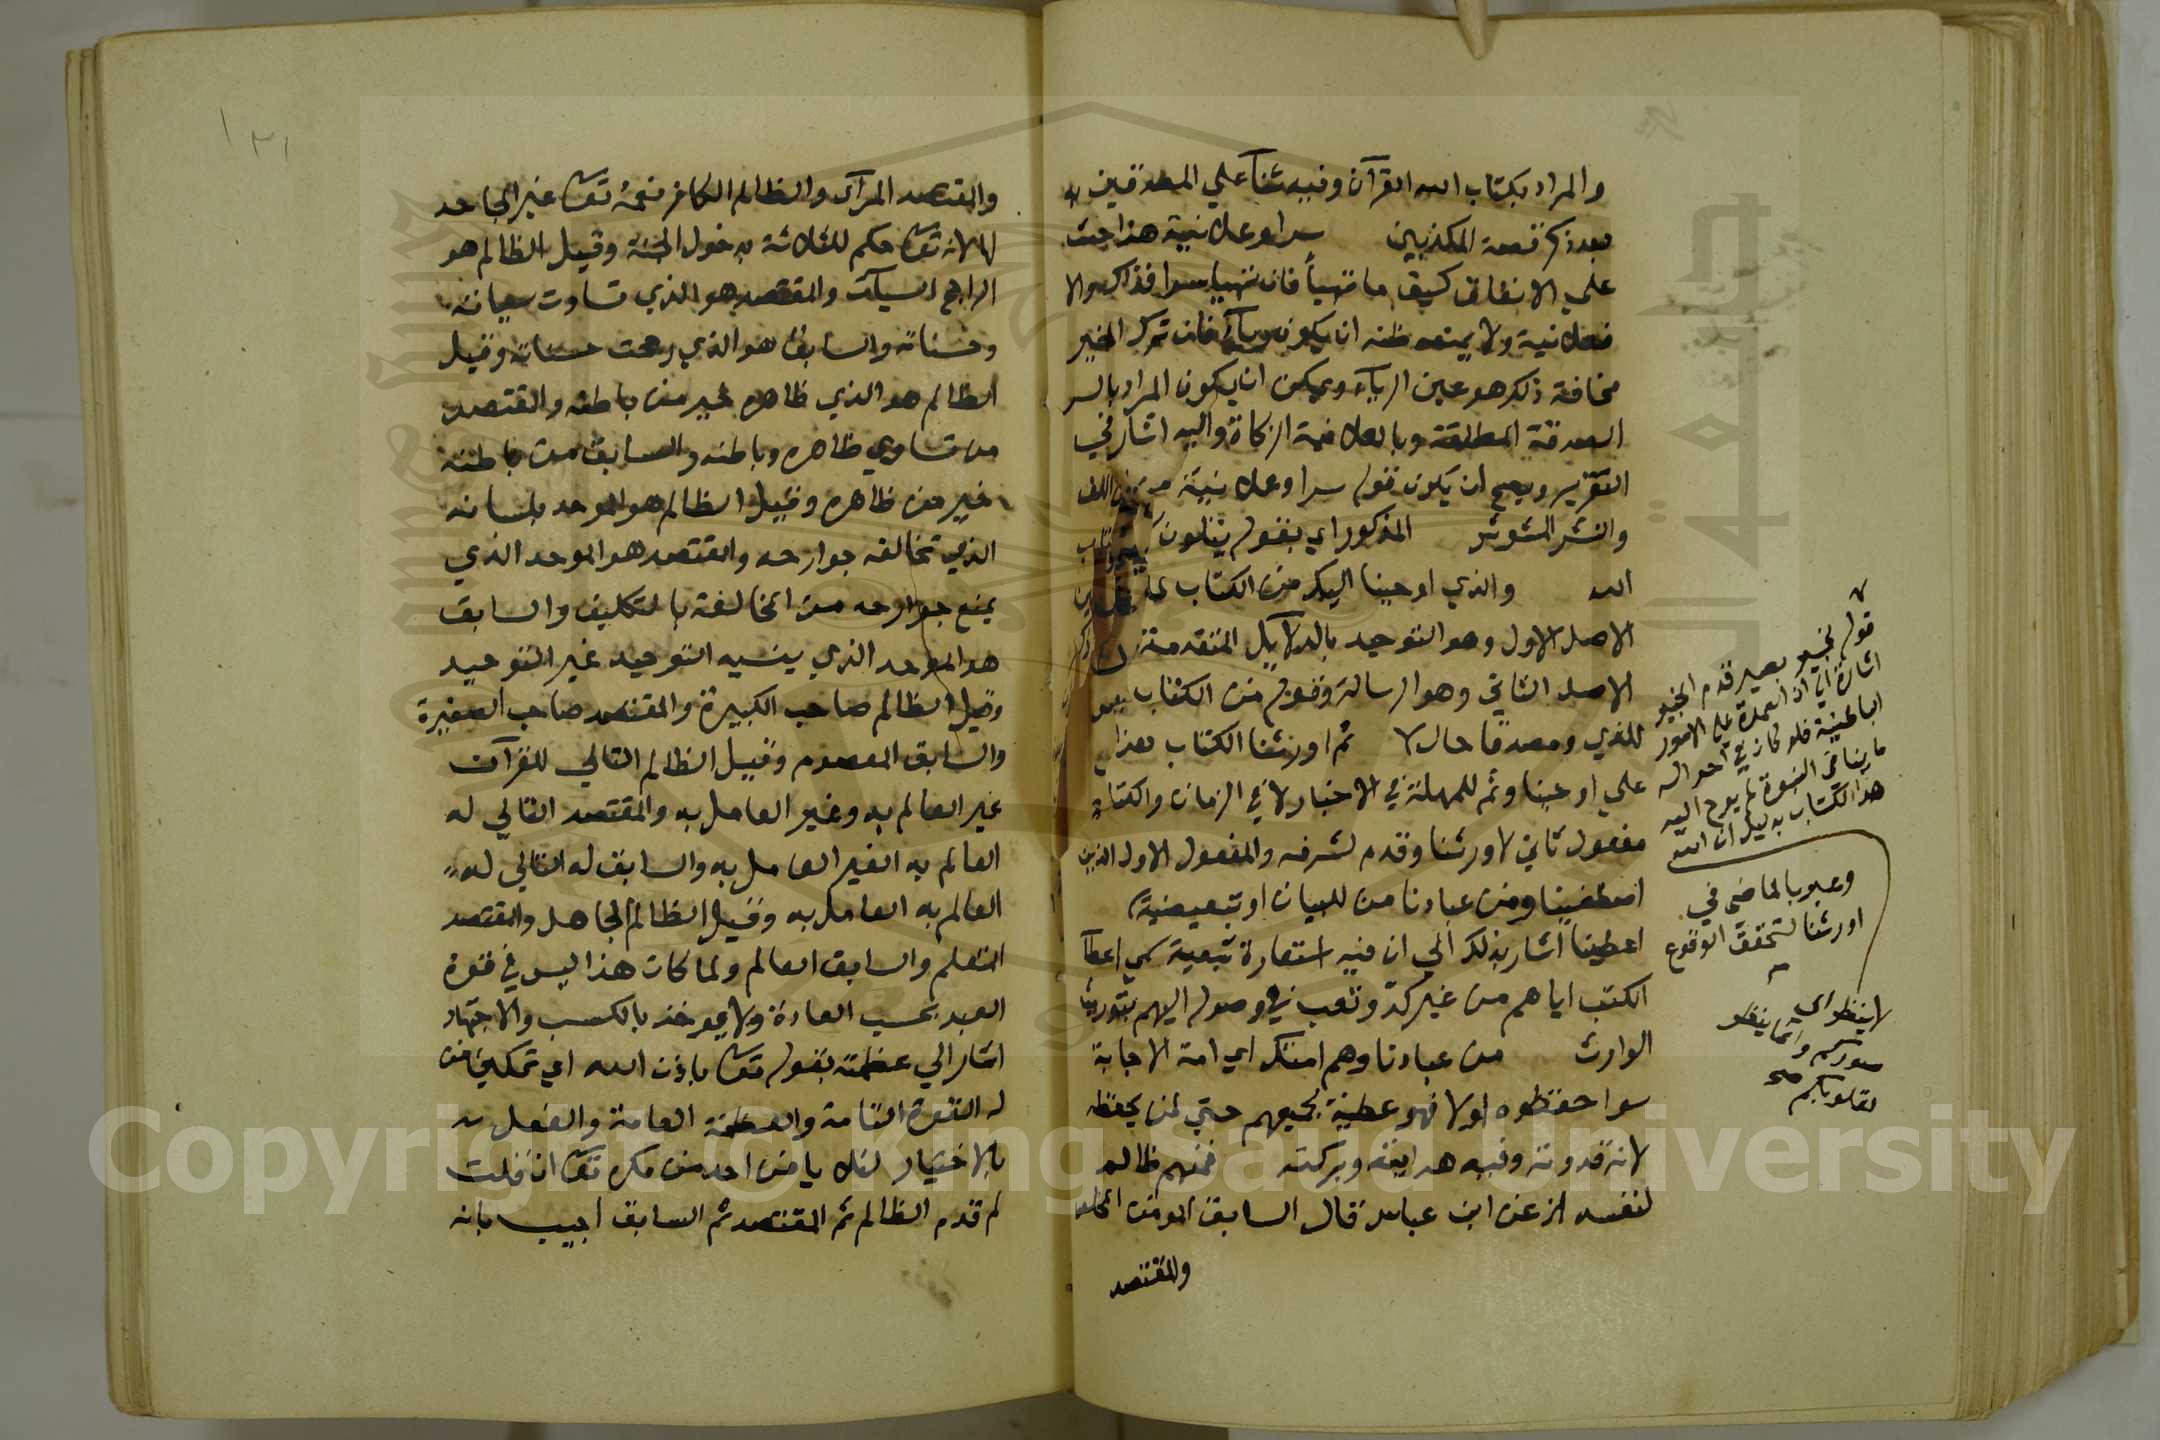 والمراد بكتاب الله القرآن وفيه ثناء علي المصدقين
بعد ذكر قصة المكذبين سرا وعلانية هذا حث
علي الانفاق كيف ما تهيأ فان تهيا سرا فذاك والا
فعلانية ولا يمنعه ظنه ان يكون رياء فان ترك الخير
مخافة ذلك هو عين الرياء ويمكن ان يكون المراد بالسر
الصدقة المطلقة وبالعلانية الزكاة واليه اشار في
التقرير ويصح ان يكون قوله سرا وعلانية من اللف
والنشر المشوش المذكور اي بقوله يتلون كتاب
الله والذي اوحينا اليك من الكتاب لما
الاصل الاول وهو التوحيد بالدلايل المتقدمة ذكر
الاصل الثاني وهو الرسالة وقوله من الكتاب
للذي ومصدقا حال لا ثم اورثنا الكتاب
علي اوحينا وثم للمهلة في الاخبار لا في الزمان والكتاب
مفعول ثاني لاورثنا وقدم لشرفه والمفعول الاول الذين
اصطفينا ومن عبادنا من للبيان او تبعيضية
اعطينا اشار بذلك الي ان فيه استعارة تبعية سمي اعطآ
الكتب اياهم من غير كد وتعب في وصوله اليهم بتوريث
الوارث من عبادنا وهم امتك اي امة الاجابة
سوا حفظوه اولا فهو عطية لجميعهم حتي لمن يحفظه
لانه قدوته وفيه هدايته وبركته فمنهم ظالم
لنفسه الخ عن ابن عباس قال السابق المومن المخلص
والمقتصد
قوله لخبير بصير قدم الخبير
اشارة الي ان العمدة علي الامور
الباطنية فلو كان في احواله
ما ينافي النبوة لم يوح اليه
هذا الكتاب بدليل ان الله
لا ينظر الي
صوركم وانما ينظر
لقلوبكم صح
وعبر بالماضي في
اورثنا لتحقق الوقوع
١٣١
والمقتصد المرآى والظالم الكافر نعمة تعا غير الجاحد
لها لانه تعا حكم للثلاثة بدخول الجنة وقيل الظالم هو
الراجح السيآت والمقتصد هو الذي تساوت سيآته
وحسناته والسابق هو الذي رجحت حسناته وقيل
الظالم هو الذي ظاهره خير من باطنه والمقتصد
من تساوي ظاهره وباطنه والسابق من باطنه
خير من ظاهره وقيل الظالم هو الموحد بلسانه
الذي تخالفه جوارحه والمقتصد هو الموحد الذي
يمنع جوارحه من المخالفة بالتكليف والسابق
هو الموحد الذي ينسيه التوحيد غير التوحيد
وقيل الظالم صاحب الكبيرة والمقتصد صاحب الصغيرة
والسابق المعصوم وقيل الظالم التالي للقرآن
غير العالم به وغير العامل به والمقتصد التالي له
العالم به الغير العامل به والسابق له التالي له
العالم به العامل به وقيل الظالم الجاهل والمقتصد
المتعلم والسابق العالم ولما كان هذا ليس في قدرة
العبد بحسب العادة ولا يوخذ بالكسب والاجتهاد
اشار الي عظمته بقوله تعا باذن الله اي تمكين من
له القدرة التامة والعظمة العامة والفعل
بالاختيار لئلا يامن احد من مكره تعا ان قلت
لم قدم الظالم ثم المقتصد ثم السابق اجيب بانه
Copyright © King Saud University